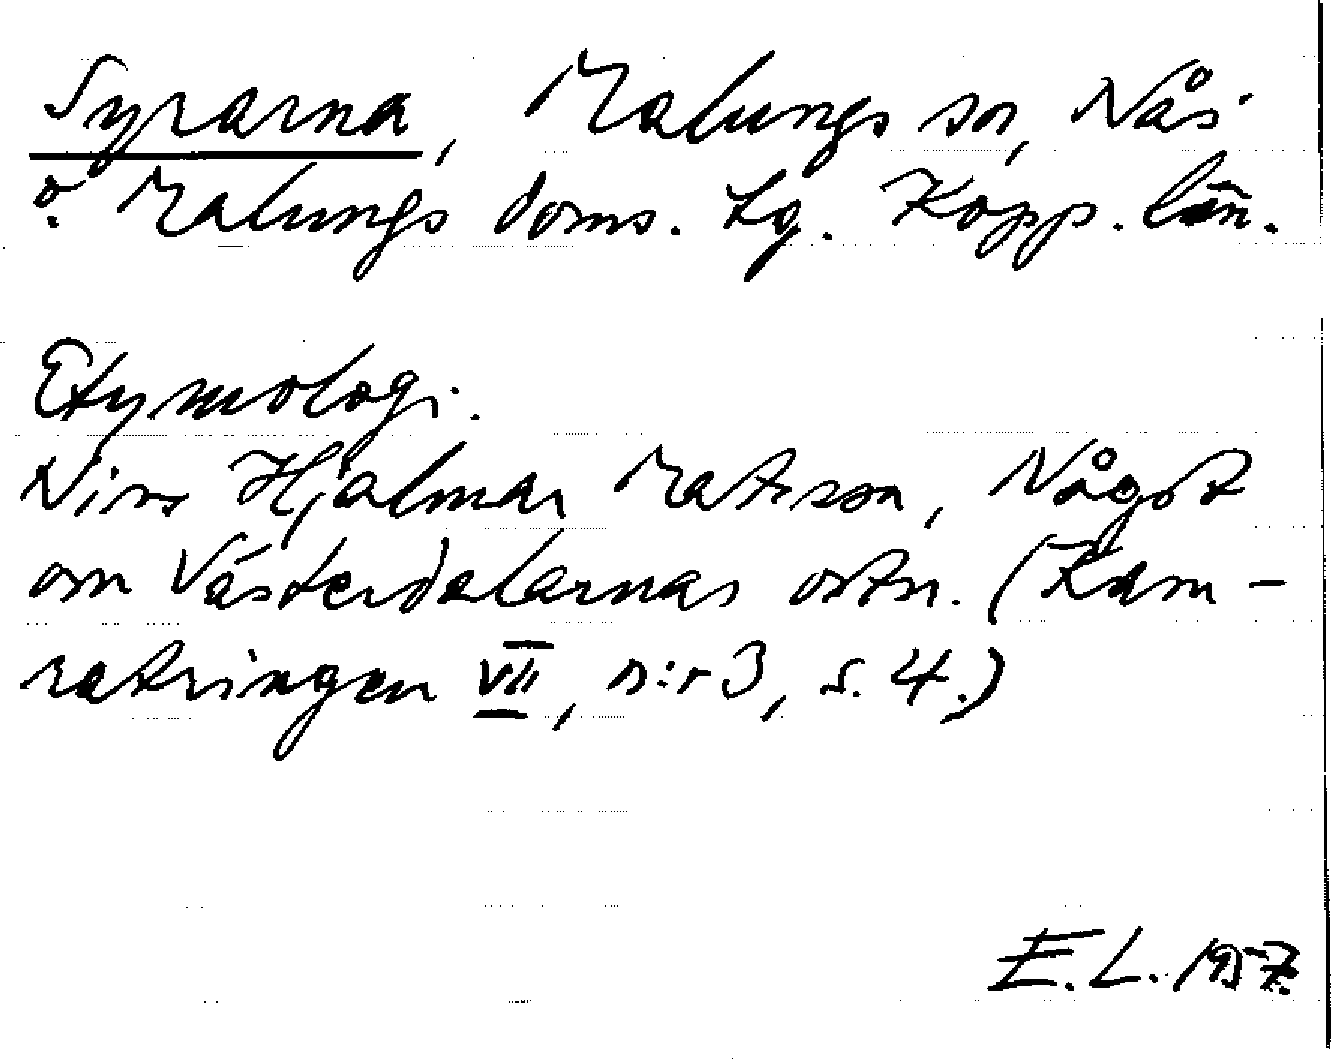 Syrarna, Malungs sn, Nås
o. Malungs doms. hg. Kopp. län.
Etymologi.
Hjalmar Matsson, Något
om Västerdalarnas ortn. (Kam-
ratringen VII, n:r 3, s. 4.)
E. L. 1957.